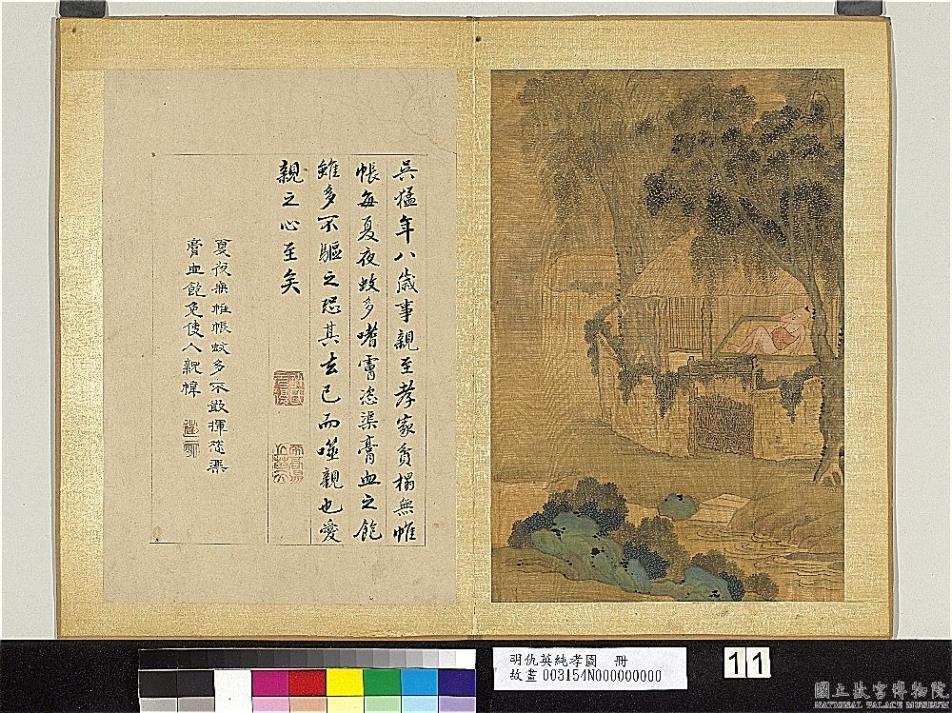 吳猛年八歲事親至孝家貧榻無帷
帳每夏夜蚊多噆膚恣渠膏血之飽
雖多不驅之恐其去己而噬親也愛
親之心至矣
夏夜無帷帳蚊多不敢揮恣渠
膏血飽免使入親幃
明仇英純孝圖 冊
故畫 003154N000000000
11
國立故宮博物院
NATIONAL PALACE MUSEUM